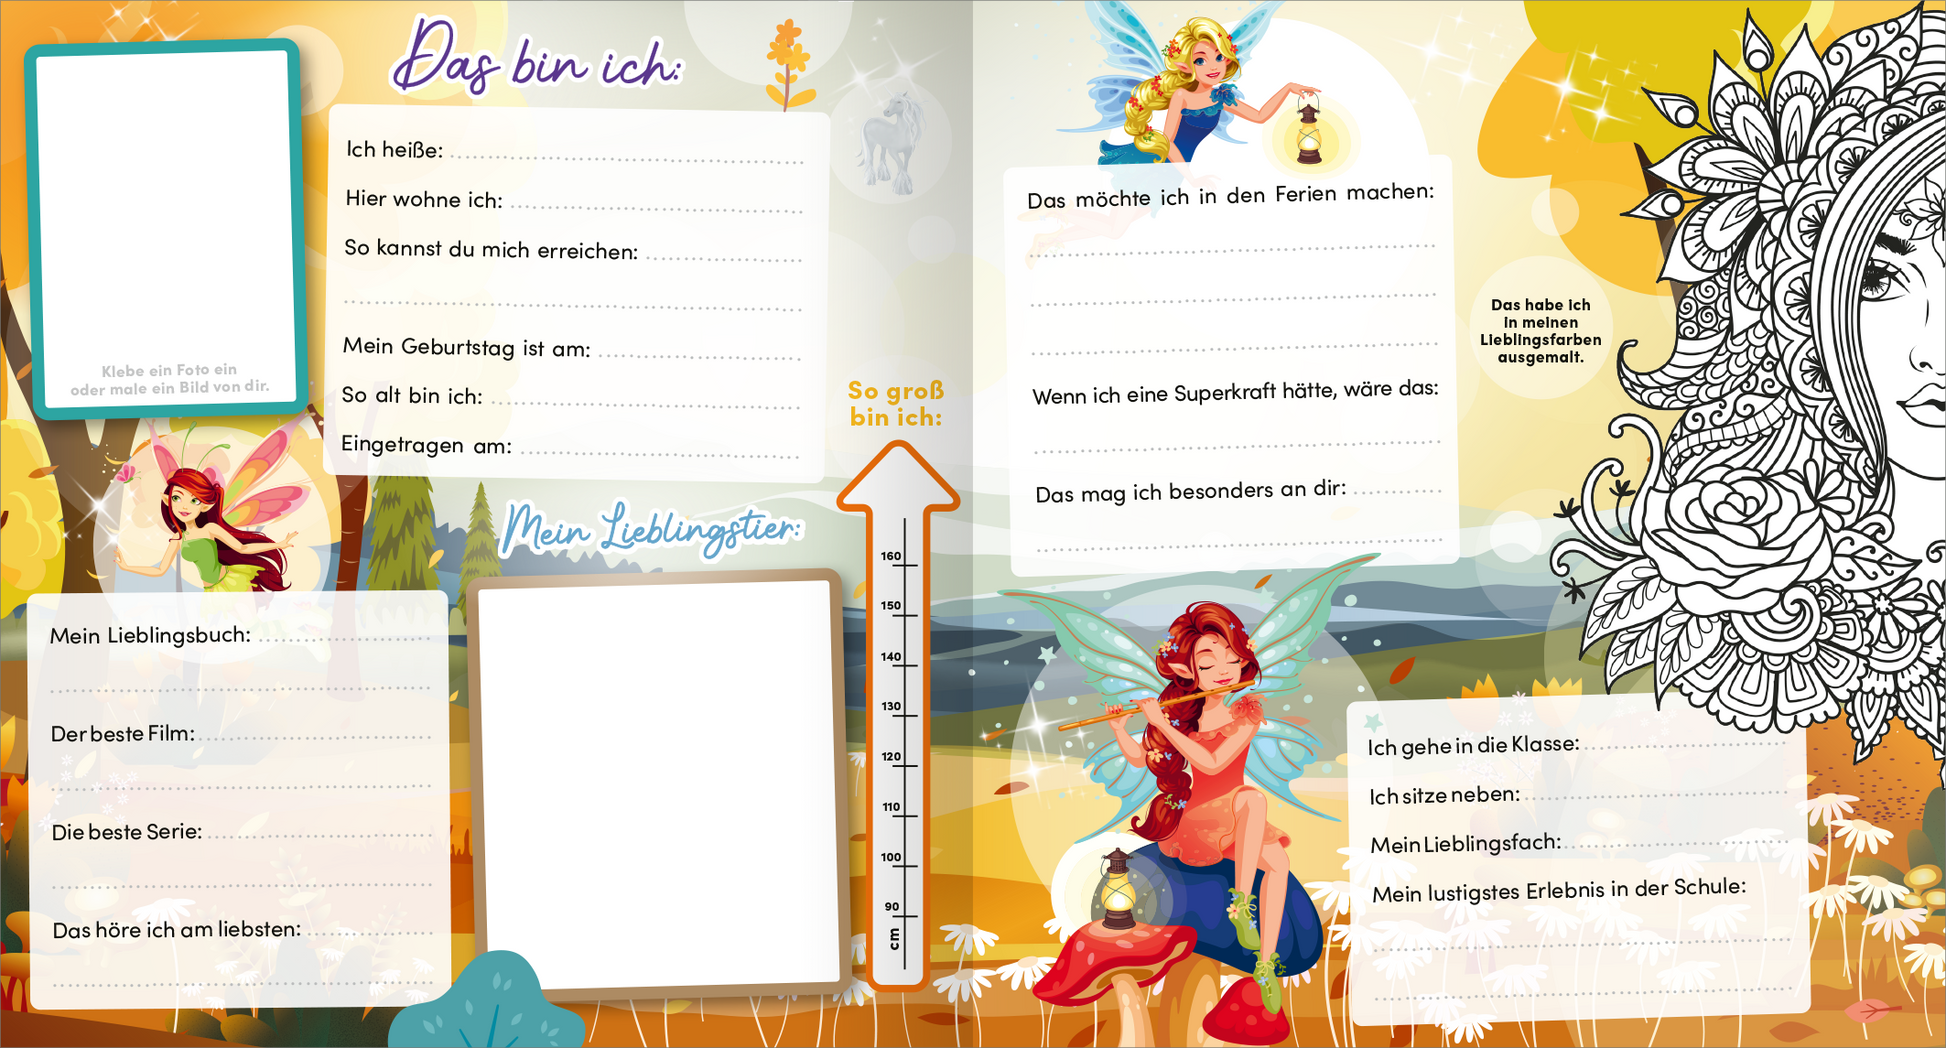 Das bin ich:
Klebe ein Foto ein
oder male ein Bild von dir.
Ich heiße:
Hier wohne ich:
So kannst du mich erreichen:
Mein Geburtstag ist am:
So alt bin ich:
Eingetragen am:
So groß
bin ich:
160
150
140
130
120
110
100
90
cm
Mein Lieblingstier:
Mein Lieblingsbuch:
Der beste Film:
Die beste Serie:
Das höre ich am liebsten:
Das möchte ich in den Ferien machen:
Wenn ich eine Superkraft hätte, wäre das:
Das mag ich besonders an dir:
Das habe ich
in meinen
Lieblingsfarben
ausgemalt.
Ich gehe in die Klasse:
Ich sitze neben:
Mein Lieblingsfach:
Mein lustigstes Erlebnis in der Schule: